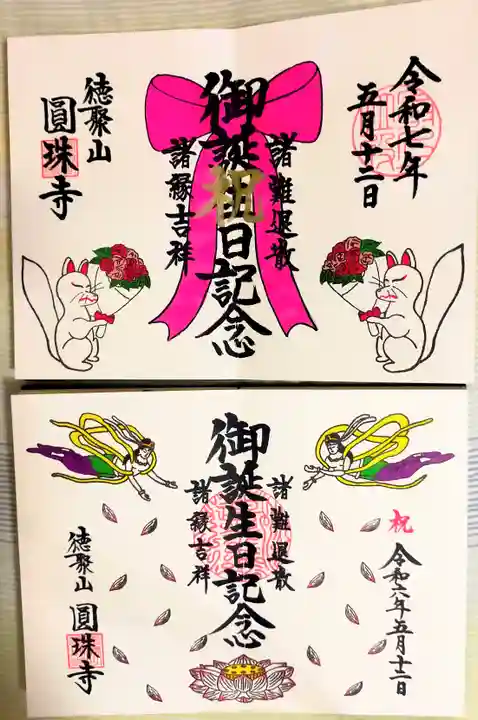 令和七年
五月十二日
諸難退散
御誕生日記念
祝
諸縁吉祥
徳聚山
圓珠寺
祝
令和六年五月十二日
諸難退散
御誕生日記念
諸縁吉祥
徳聚山 圓珠寺